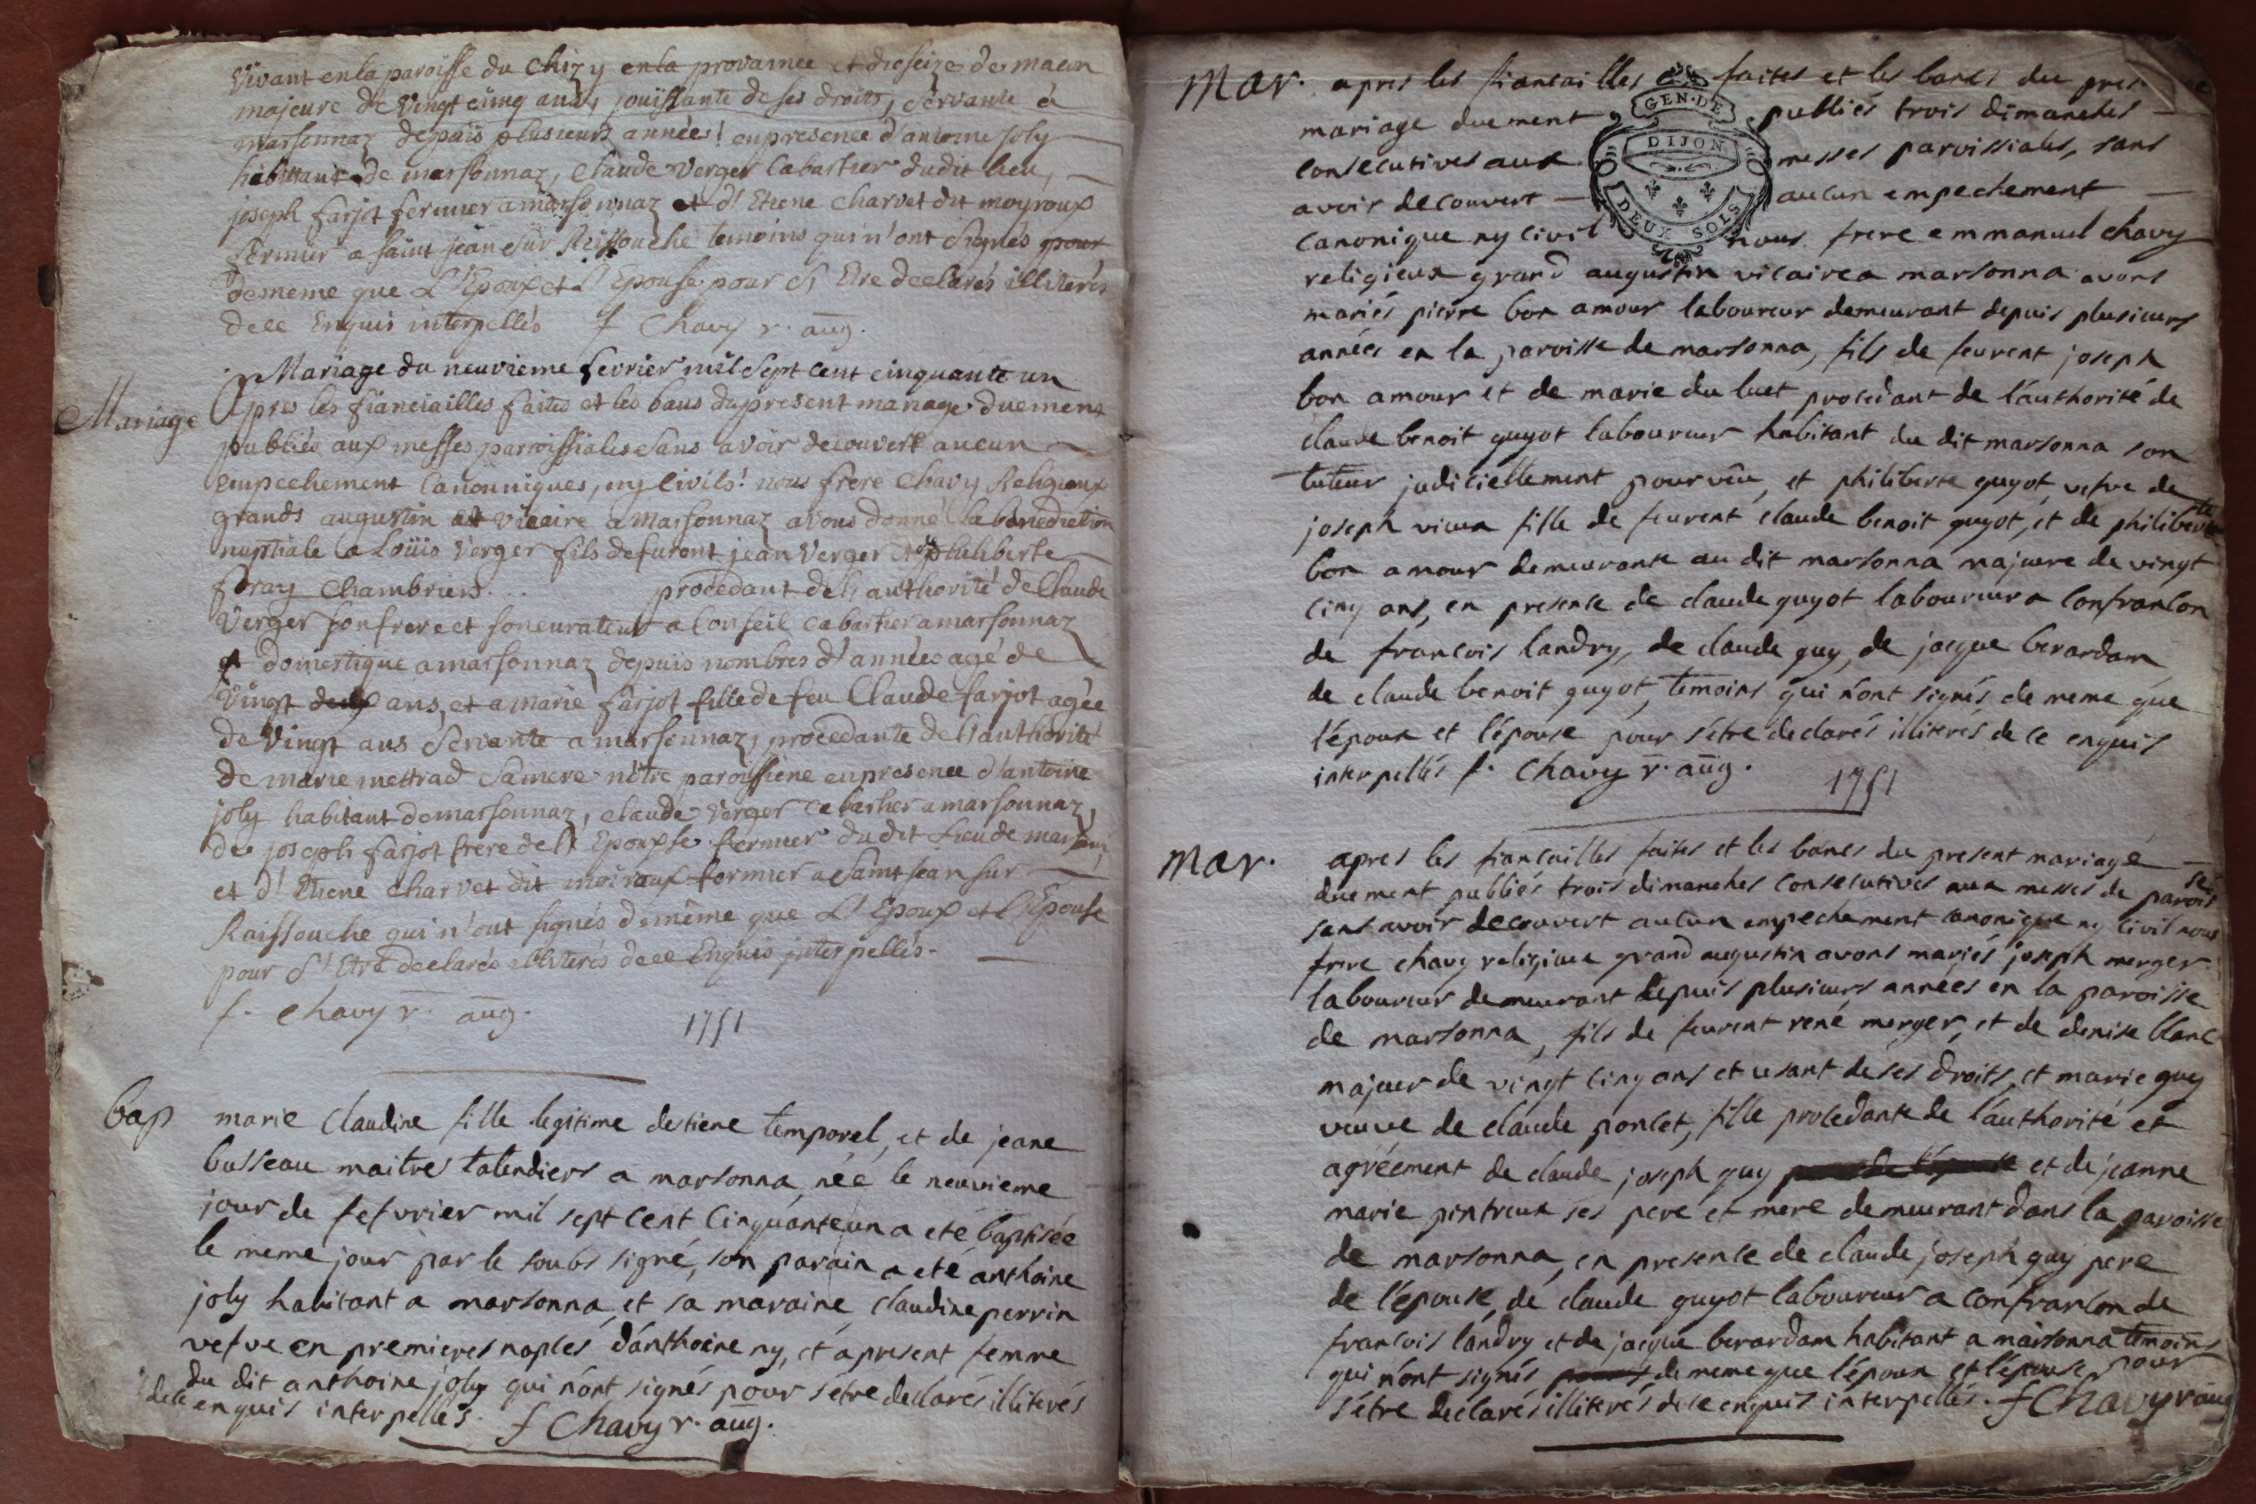 vivant en la paroisse du Chizy en la provainee et dioseize de macon
majeure de vingt cinq ans, jouissante de ses droits, servante a
marsonnaz depuis plusieurs années! en presence d'antoine joly
habittant de marsonnaz, Claude Verger Cabartier dudit lieu,
joseph farjot fermier a marsonnaz et d'Etiene Charvet dit moyroux
fermier a saint jean sur Reissouche temoins qui n'ont signés pour
de meme que L'Epoux et L'Epouse pour s'Etre declarés illiterés
de ce Enquis interpellés f Chavy r. aug.
Mariage du neuvieme fevrier mil sept cent cinquante un
Mariage Apres les fianciailles faites et les bans du present mariage duement
publiés aux messes paroissiales sans avoir decouvert aucun
empechement Canonniques, ny Civils! nous frere Chavy Religieux
grands augustin et vicaire a Marsonnaz avons donné la benediction
nuptiale a Loüis Verger fils de furont jean Verger et philiberte
foray Chambriers... procedant de l'authorité de Claude
Verger son frere et son curateur a Conseil cabartier a marsonnaz
et domestique a marsonnaz depuis nombres d'années agé de
Vingt deux ans, et a marie farjot fille de feu Claude farjot agée
de Vingt ans Servante a marsonnaz, procedante de l'authorité
de marie mettrad sa mere notre paroissiene en presence d'antoine
joly habitant de marsonnaz, claude Verger Cabartier a marsonnaz,
de joseph farjot frere de l'Epouse fermier du dit Lieu de marsonaz
et d'Etiene Charvet dit moiroux fermier a Saint jean sur
Raissouche qui n'ont signés de même que L'Epoux et l'Epouse
pour s'Etre declarés illiterés de ce Enquis interpellés.
f. Chavy r. aug. 1751
bap marie Claudine fille legitime detiene temporel, et de jeane
busseau maitres talendiers a marsonna, née le neuvieme
jour de fefvrier mil sept cent Cinquante un a eté baptisée
le meme jour par le soubs signé, son parain a eté anthoine
joly habitant a marsonna, et sa maraine, claudine perrin
vefve en premieres nopces d'anthoine ny, et apresent femme
du dit anthoine joly qui n'ont signés pour s'etre declarés illiterés
de ce enquis interpellés. f Chavy r. aug.
Mar. apres les fiancailles faites et les bancs du present
GEN. DE
DIJON
DEUX SOLS
mariage duement publiés trois dimanches
consecutives aux messes paroissiales, sans
avoir decouvert aucun empechement
canonique ny civil nous frere emmanuel chavy
religieux grand augustin vicaire a marsonna avons
mariés pierre bon amour laboureur demeurant depuis plusieurs
années en la paroisse de marsonna, fils de feurent joseph
bon amour et de marie du luet procedant de l'authorité de
claude benoit guyot laboureur habitant du dit marsonna son
tuteur judiciellement pourvëu, et philiberte guyot, vefve de
joseph vieux fille de feurent claude benoit guyot, et de philiberte
bon amour demeurante au dit marsonna majeure de vingt
cinq ans, en presence de claude guyot laboureur a Confrancon
de francois landry, de claude guy, de jacque berardan
de claude benoit guyot, temoins qui n'ont signés de meme que
l'époux et l'épouse pour s'étre declarés illiterés de ce enquis
interpellés f. Chavy r. aug. 1751
Mar. apres les fiancailles faites et les bancs du present mariagé
duement publiés trois dimanches consecutives aux messes de paroisse
sans avoir decouvert aucun empechement canonique ny civil nous
frere chavy religieux grand augustin avons mariés joseph merger
laboureur demeurant depuis plusieurs années en la paroisse
de marsonna, fils de feurent rené merger, et de denise blanc
majeur de vingt cinq ans et usant de ses droits, et marie guy
veuve de claude poncet, fille procedante de l'authorité et
agréement de claude joseph guy et de jeanne
marie pintreux ses pere et mere demeurant dans la paroisse
de marsonna, en presence de claude joseph guy pere
de l'épouse, de claude guyot laboureur a Confrancon de
francois landry et de jacque berardan habitant a marsonna temoins
qui n'ont signés de meme que l'époux et l'épouse pour
s'étre declarés illiterés de ce enquis interpellés. f Chavy r aug